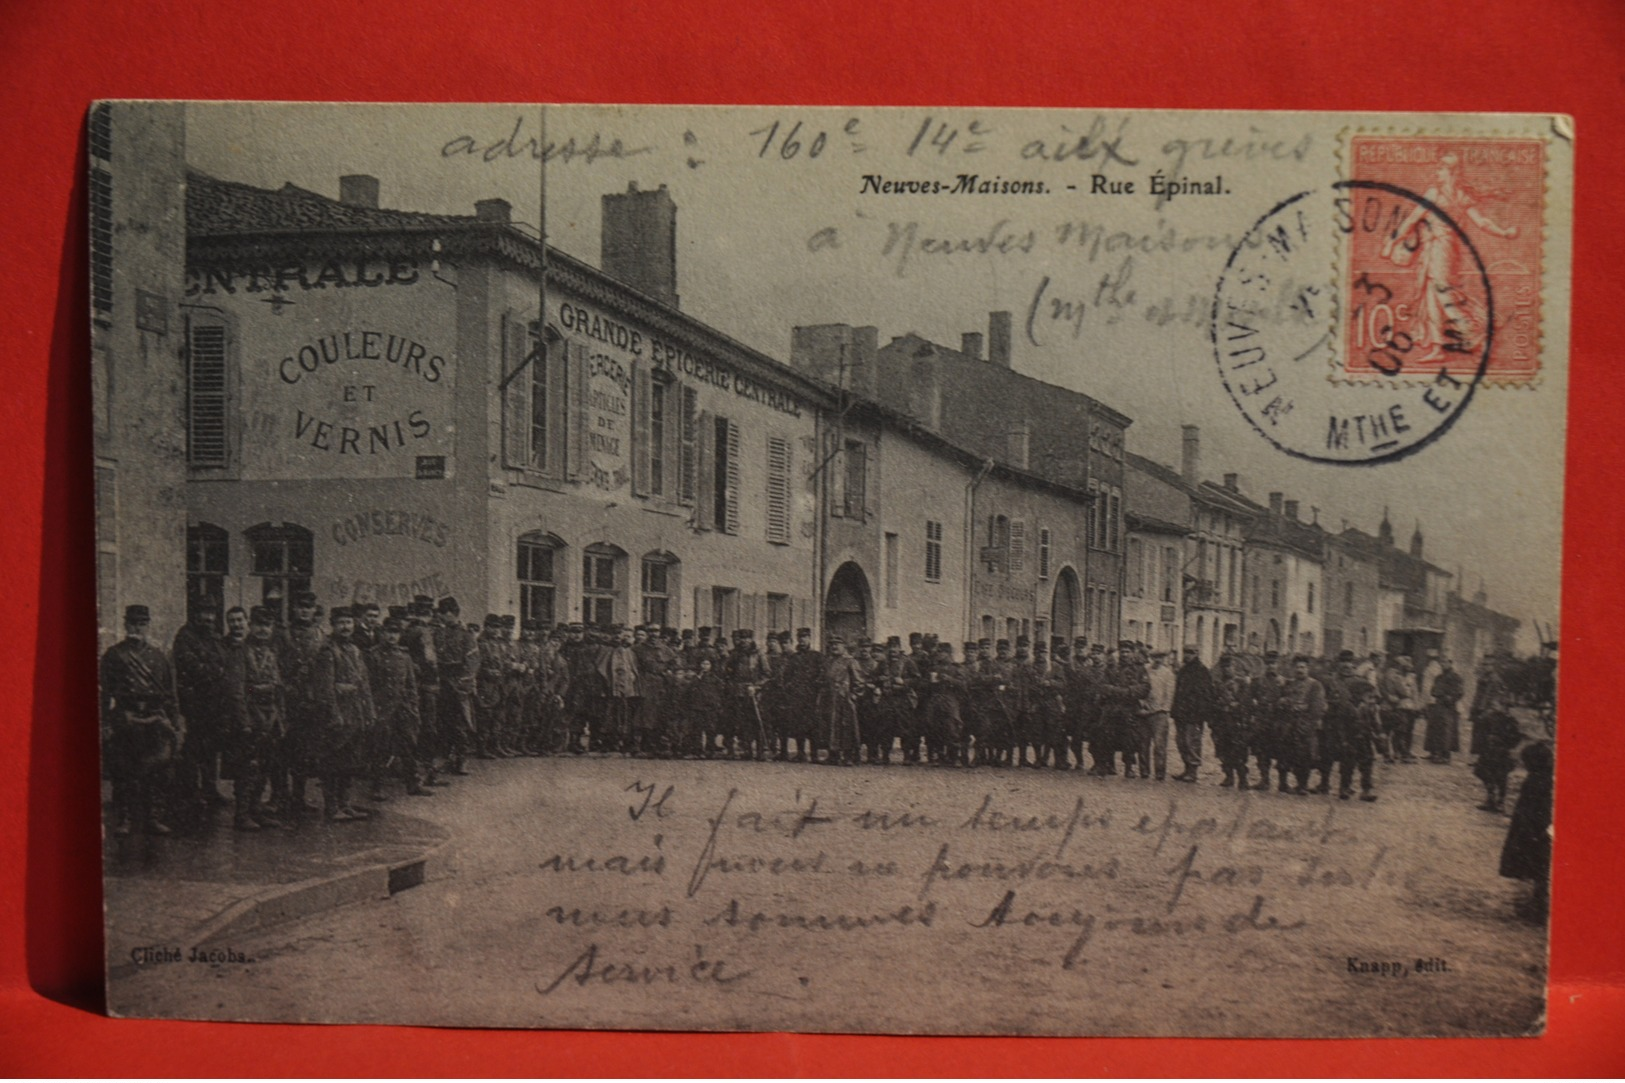 adresse : 160e 14e aux grèves
Neuves-Maisons. - Rue Épinal.
à Neuves Maisons
(Mthe et Melle)
REPUBLIQUE FRANÇAISE
10c
POSTES
NEUVES-MAISONS
3
06
MTHE ET MLLE
ENTRALE
COULEURS
ET
VERNIS
CONSERVES
de Ire MARQUE
GRANDE EPICERIE CENTRALE
ERCERIE
ARTICLES
DE
MENAGE
Il fait un temps épatant
mais nous ne pouvons pas
nous sommes toujours de
service.
Cliché Jacobs.
Knapp, édit.